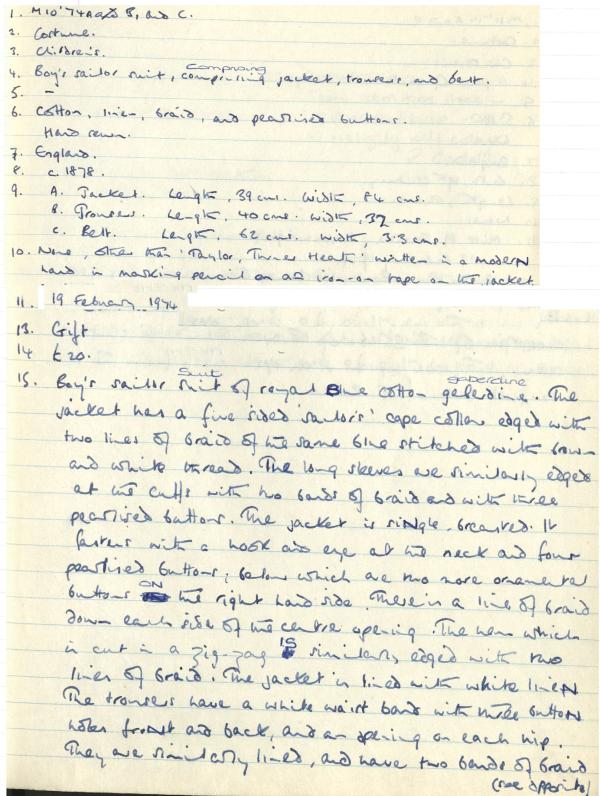 1. M10'74A and B, and C.
2. Costume.
3. Children's.
comprising
4. Boy's sailor suit, comprising jacket, trousers, and belt.
5. –
6. Cotton, linen, braid, and pearlised buttons.
Hand sewn.
7. England.
8. c.1878.
9. A. Jacket. Length, 39 cms. Width, 54 cms.
B. Trousers. Length, 40 cms. Width, 32 cms.
C. Belt. Length, 62 cms. Width, 3.3 cms.
10. None, other than 'Taylor, Turner Heath' written in a modern
hand in marking pencil on an iron-on tape on the jacket.
11. 19 February 1974
13. Gift
14 £20.
suit gaberdine
15. Boy's sailor suit of royal Blue cotton geberdine. The
jacket has a five sided sailor's' cape collar edged with
two lines of braid of the same blue stitched with brown
and white thread. The long sleeves are similarly edged
at the cuffs with two bands of braid and with three
pearlised buttons. The jacket is single-breasted. It
fastens with a hook and eye at the neck and four
pearlised buttons; below which are two more ornamental
buttons ON the right hand side. There is a line of braid
down each side of the centre opening. The hem which
is cut in a zig-zag IS similarly edged with two
lines of braid. The jacket is lined with white linen
The trousers have a white waist band with three button
holes front and back, and an opening on each hip.
They are similarly lined, and have two bands of braid
(see opposite)